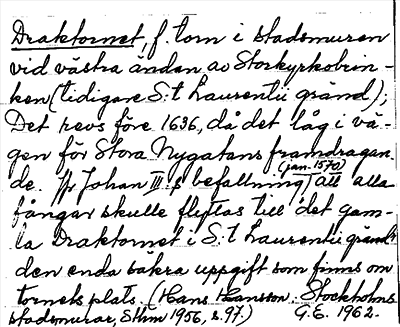 Draktornet, f. torn i stadsmuren
vid västra ändan av Storkyrkobrin-
ken (tidigare S:t Laurentii gränd);
Det revs före 1636, då det låg i vä-
gen för Stora Nygatans framdragan-
de. Johan III:s befallning (jan. 1570) att alla
fångar skulle flyttas till det gam-
la Draktornet i S:t Laurentii gränd
den enda säkra uppgift som finns om
tornets plats. (Hans Hansson: Stockholms
stadsmurar, Sthlm 1956, s. 97.) G.E. 1962.